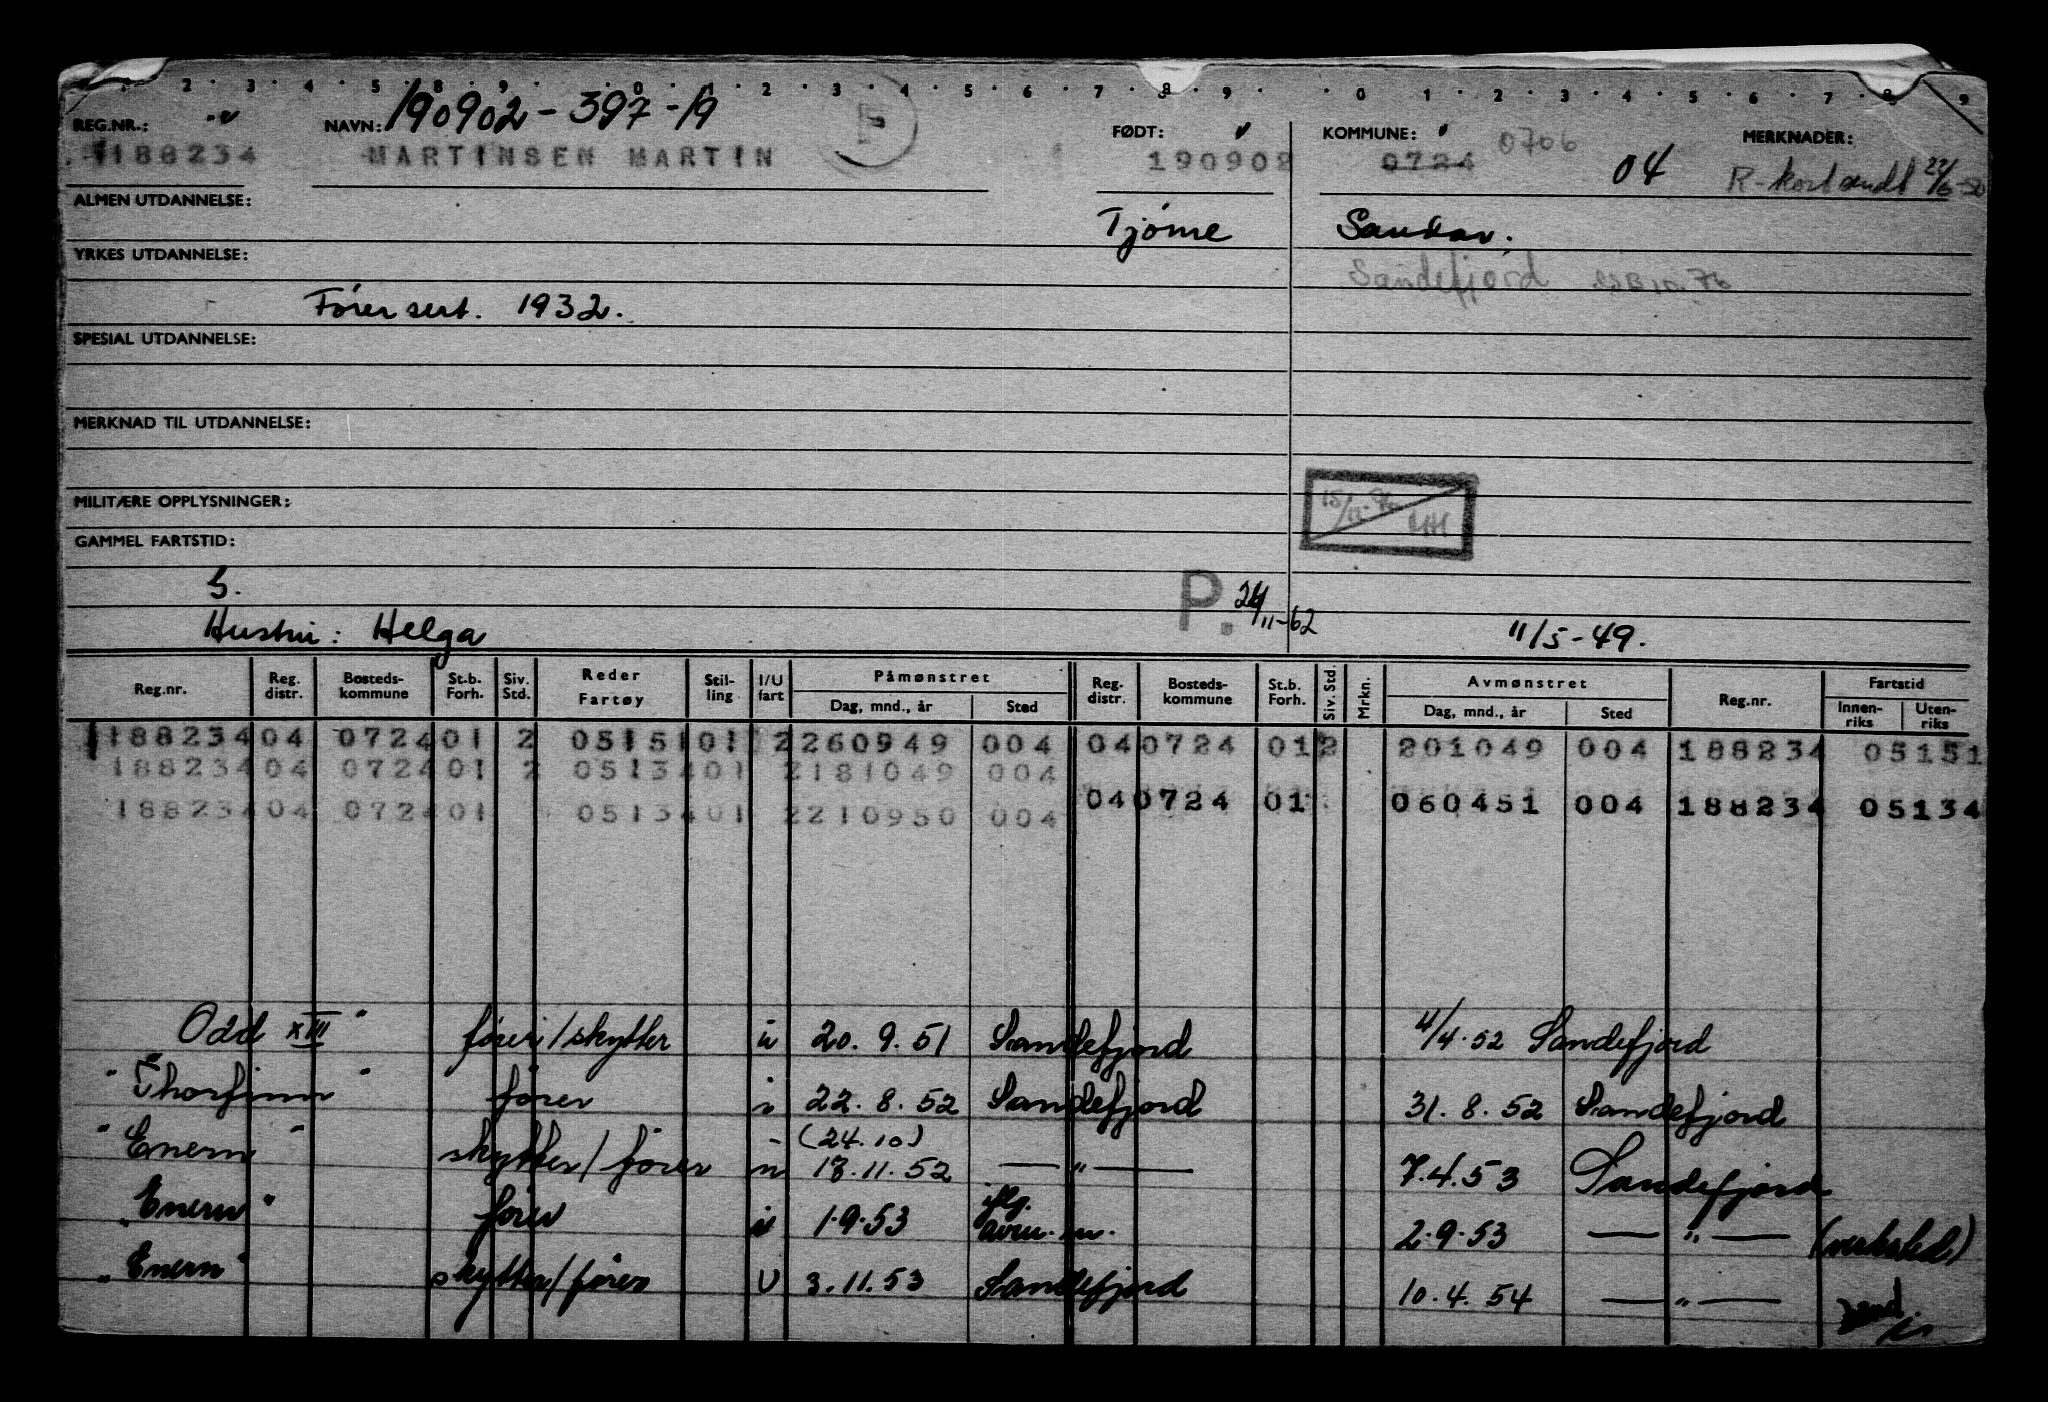 2 · 3 · 4 · 5 · 8 · 9 · 0 · 1 · 2 · 3 · 4 · 5 · 6 · 7 · 8 · 9 · · 0 · 1 · 2 · 3 · 4 · 5 · 6 · 7 · 8 · 9
REG.NR.: NAVN: 190902-397-19 FØDT: KOMMUNE: 0706 MERKNADER:
188234 MARTINSEN MARTIN 190902 0724 04 R-kort sendt 22/6-50
ALMEN UTDANNELSE: Tjøme Sandar.
YRKES UTDANNELSE: Sandefjord
Førersert. 1932.
SPESIAL UTDANNELSE:
MERKNAD TIL UTDANNELSE:
MILITÆRE OPPLYSNINGER: 15/11-76
GAMMEL FARTSTID:
S. P. 11-62
Hustru: Helga 11/5-49.
Reg.nr. Reg. distr. Bosteds- kommune St.b. Forh. Siv. Std. Reder Fartøy Stil- ling I/U fart Påmønstret Dag, mnd., år Sted Reg. distr. Bosteds- kommune St.b. Forh. Siv. Std. Mrkn. Avmønstret Dag, mnd., år Sted Reg.nr. Fartstid Innen- riks Uten- riks
188234 04 0724 01 2 05151 01 2 260949 004 04 0724 01 2 201049 004 188234 05151
188234 04 0724 01 2 05134 01 2 181049 004
04 0724 01 060451 004 188234 05134
188234 04 0724 01 05134 01 2 210950 004
Odd XIII" fører/skytter u 20.9.51 Sandefjord 4/4.52 Sandefjord
"Thorfinn" fører i 22.8.52 Sandefjord 31.8.52 Sandefjord
"Enern" skytter/fører - (24.10) u 18.11.52 — " — 7.4.53 Sandefjord
"Enern" fører i 1.9.53 iflg. avm. 2.9.53 — " — (verksted)
"Enern" skytter/fører U 3.11.53 Sandefjord 10.4.54 — " —